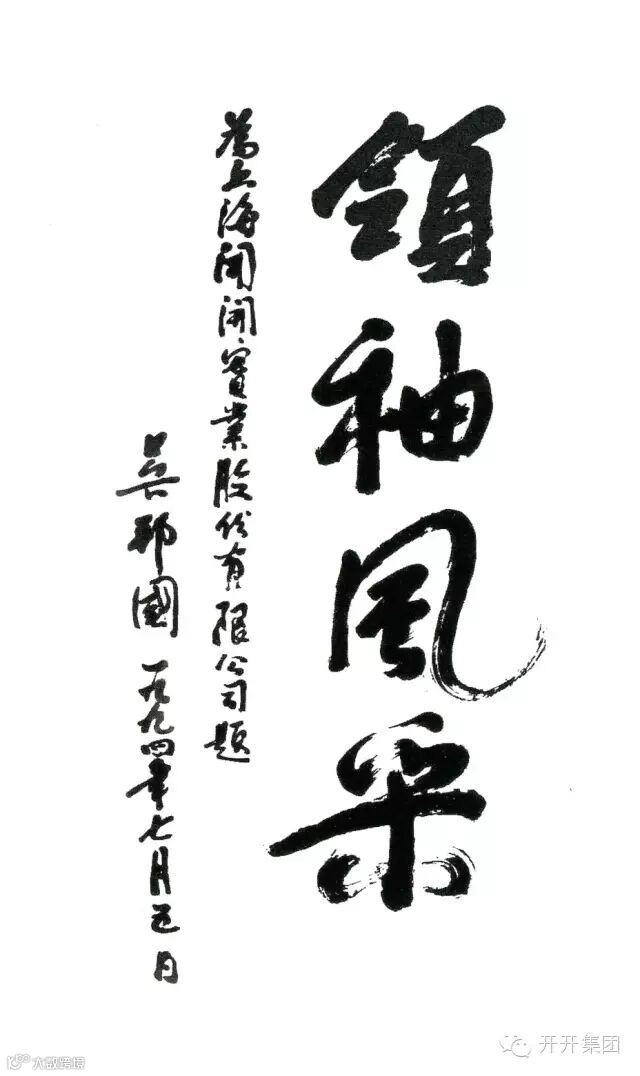 領袖風采
為上海開開實業股份有限公司題
吴邦國 一九九四年七月五日
大数跨境
开开集团